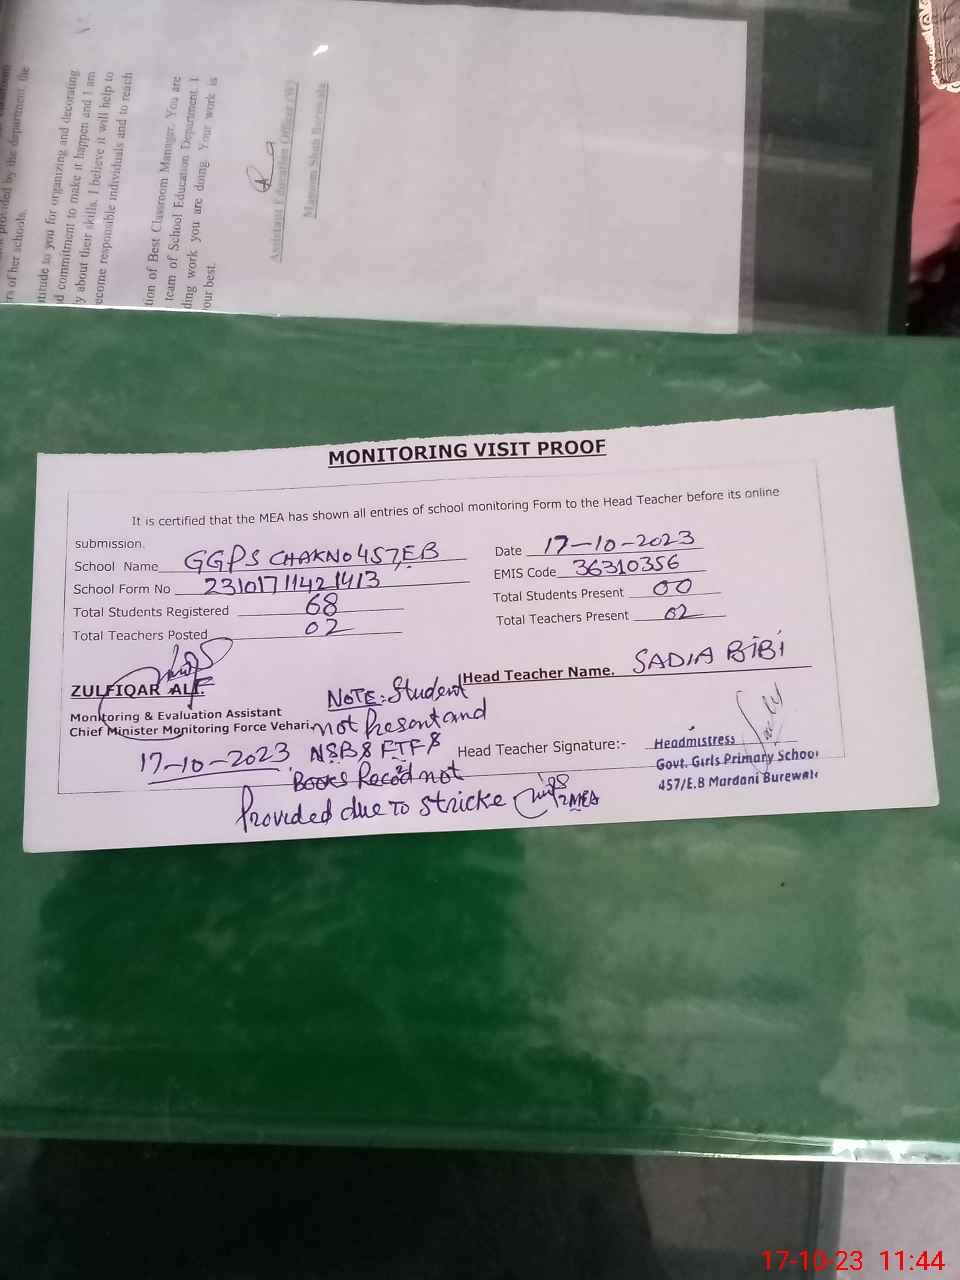 provided by the department, the
rs of her schools.
titude to you for organizing and decorating
d commitment to make it happen and I am
y about their skills. I believe it will help to
ecome responsible individuals and to reach
tion of Best Classroom Manager. You are
team of School Education Department. I
ding work you are doing. Your work is
our best.
Assistant Education Officer (W)
Shah Burewala
MONITORING VISIT PROOF
It is certified that the MEA has shown all entries of school monitoring Form to the Head Teacher before its online
submission.
School Name GGPS CHAKNO 457, EB Date 17-10-2023
School Form No 2310171142 1413 EMIS Code 36310356
Total Students Registered 68 Total Students Present 00
Total Teachers Posted 02 Total Teachers Present 02
ZULFIQAR ALI. Head Teacher Name. SADIA BIBI
Monitoring & Evaluation Assistant
Chief Minister Monitoring Force Vehari
17-10-2023
NOTE: Student
not Present and
NSB & FTF &
Books Record not
Provided due to stricke MEA
Head Teacher Signature:-
Headmistress
Govt. Girls Primary School
457/E.B Mardani Burewala
17-10-23 11:44